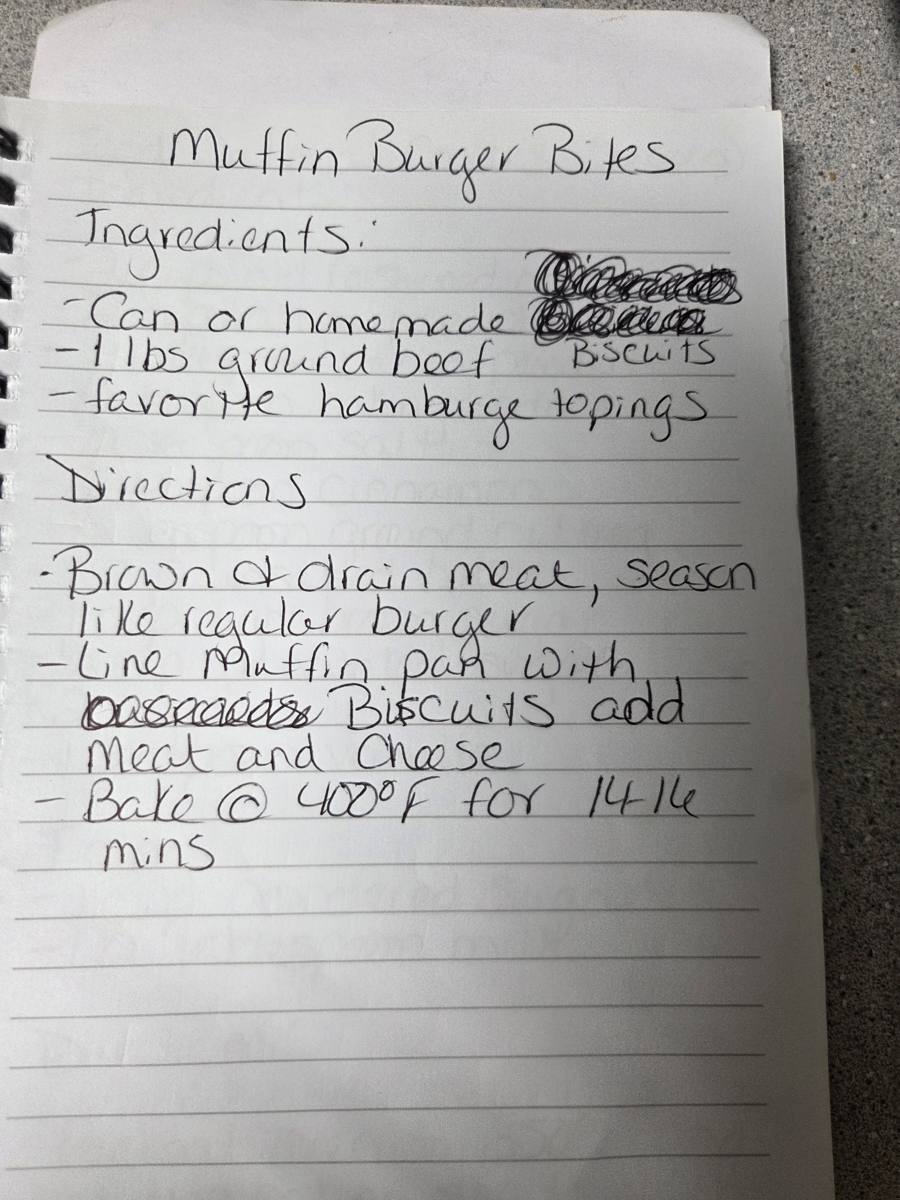 Muffin Burger Bites
Ingredients:
- Can or homemade
- 1 lbs ground beef Biscuits
- favorite hamburge topings
Directions
- Brown & drain meat, season
like regular burger
- Line Muffin pan with
Biscuits add
meat and Cheese
- Bake @ 400°F for 14-16
mins